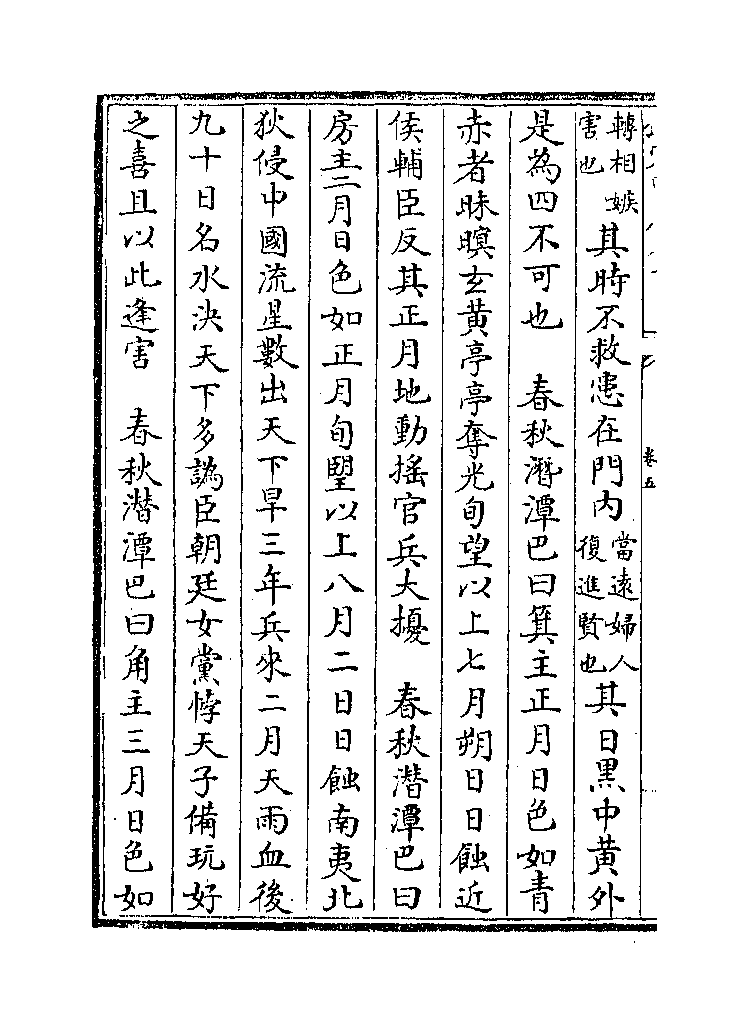 轉相嫉害也其時不救患在門内當遠婦人復進賢也其日黒中黄外
是為四不可也　春秋潛潭巴曰箕主正月日色如青
赤者昧暝玄黄亭亭奪光旬望以上七月朔日日蝕近
侯輔臣反其正月地動揺官兵大擾　春秋潛潭巴曰
房主二月日色如正月旬朢以上八月二日日蝕南夷北
狄侵中國流星數出天下旱三年兵來二月天雨血後
九十日名水決天下多譌臣朝廷女黨悖天子備玩好
之喜且以此逢害　春秋潛潭巴曰角主三月日色如
卷五